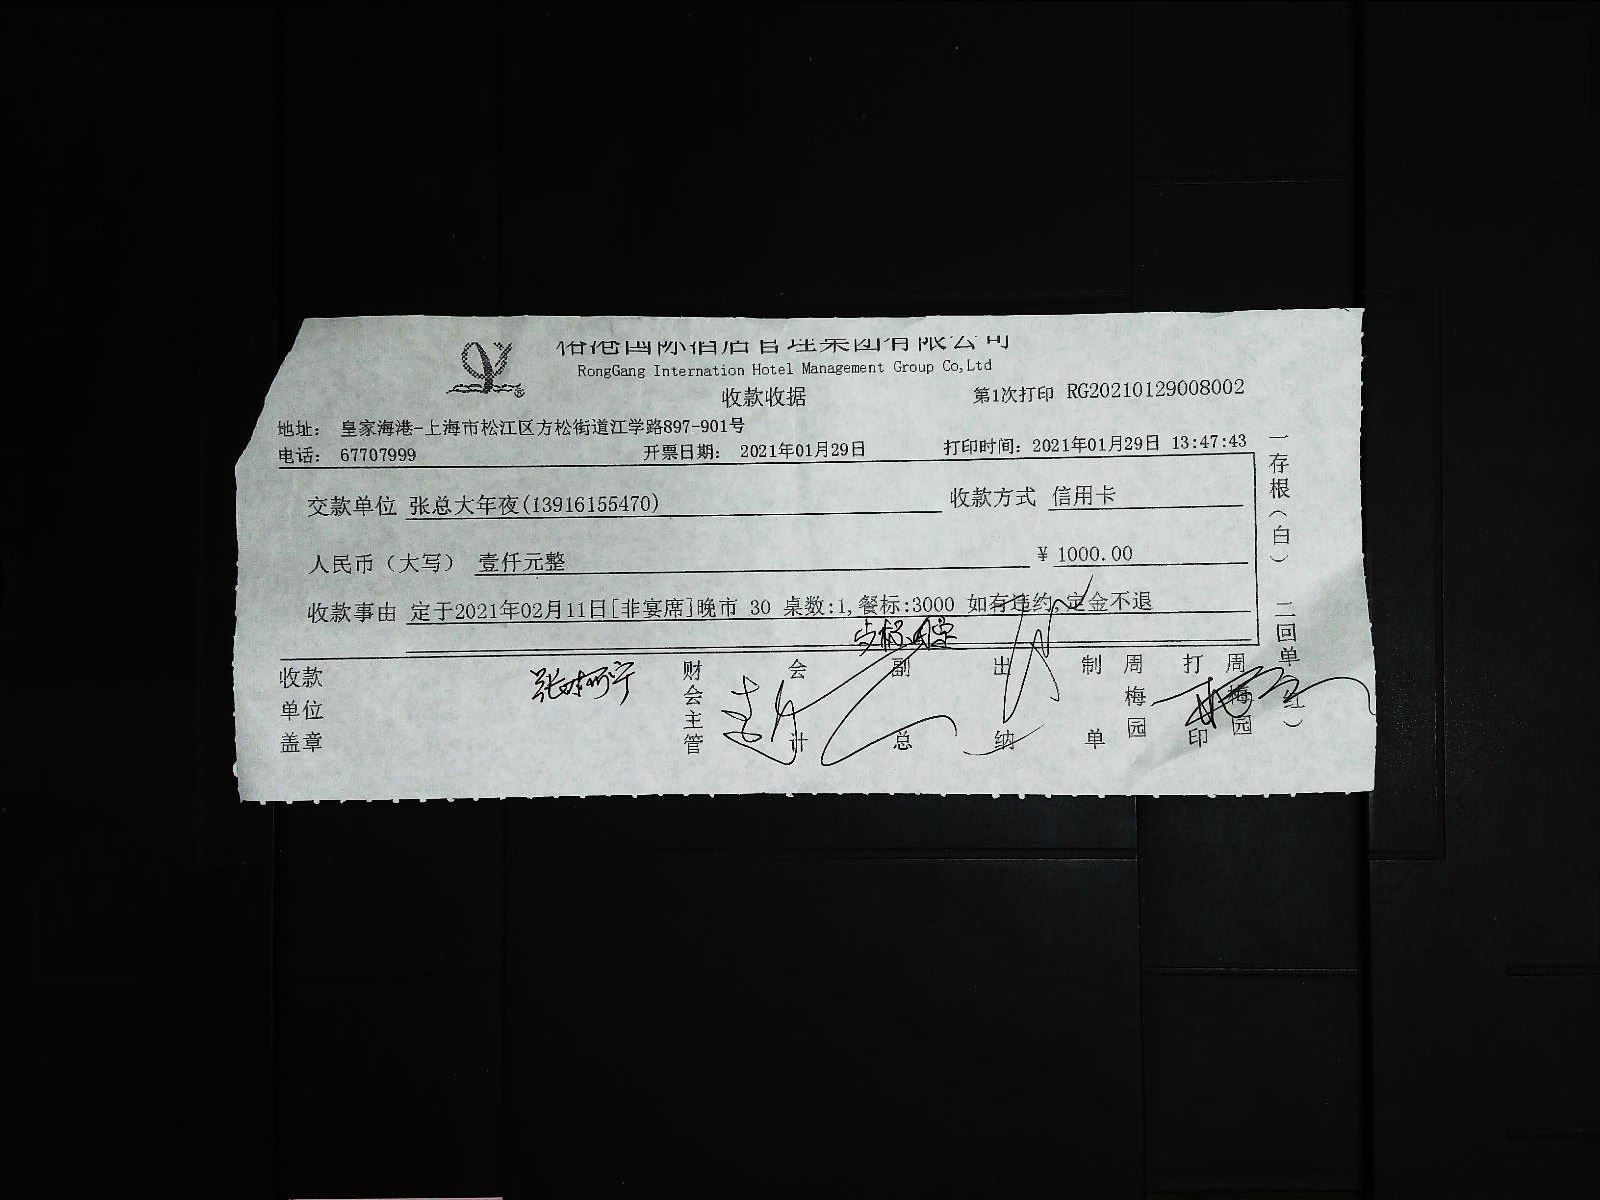 港国际酒店管理集团有限公司
RongGang Internation Hotel Management Group Co,Ltd
收款收据
第1次打印 RG20210129008002
地址: 皇家海港-上海市松江区方松街道江学路897-901号
电话: 67707999 开票日期: 2021年01月29日 打印时间: 2021年01月29日 13:47:43
交款单位 张总大年夜(13916155470) 收款方式 信用卡
人民币（大写） 壹仟元整 ¥ 1000.00
收款事由 定于2021年02月11日[非宴席]晚市 30 桌数:1,餐标:3000 如有违约,定金不退
收款单位盖章
财会主管
会计
副总
出纳
制单 周梅园
打印 周梅园
一存根（白） 二回单（红）